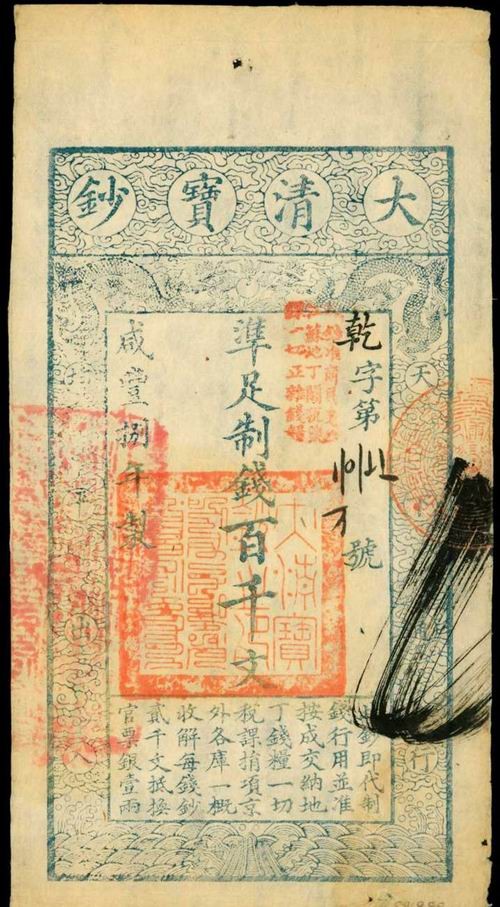 大清寶鈔
天
行
乾字第
號
準足制錢百千文
咸豐捌年製
平出入
鈔即代制
錢行用並准
按成交納地
丁錢糧一切
稅課捐項京
外各庫一概
收解每錢鈔
貳千文抵換
官票銀壹兩